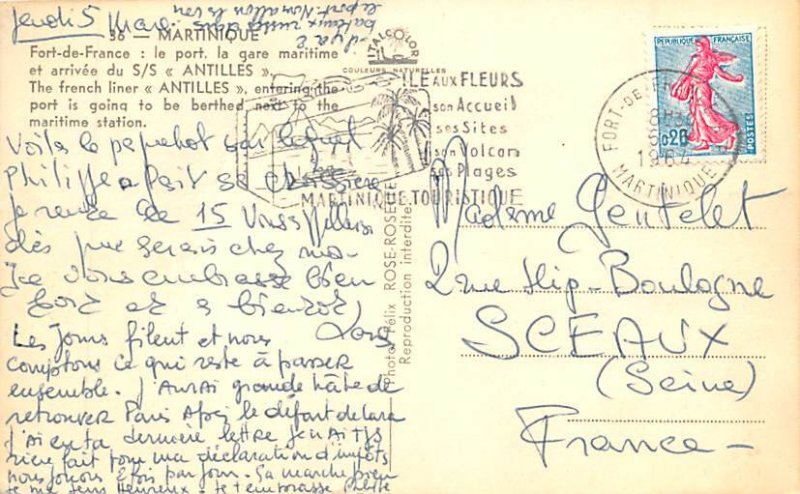 Jeudi 5 Mars
36 — MARTINIQUE
Fort-de-France : le port, la gare maritime
et arrivée du S/S « ANTILLES ».
The french liner « ANTILLES », entering the
port is going to be berthed next to the
maritime station.
ITALCOLOR
COULEURS NATURELLES
ILE AUX FLEURS
son Accueil
ses Sites
son Volcan
ses Plages
MARTINIQUE TOURISTIQUE
REPUBLIQUE FRANÇAISE
0,20
POSTES
FORT-DE-FRANCE
1964
MARTINIQUE
Voilà le paquebot sur lequel
Philippe a fait sa croisière
je rentre le 15 Vous
dès que serais chez moi
Je vous embrasse bien
fort et à bientôt,
Les jours filent et nous
comptons ce qui reste à passer
ensemble. J'aurai grande hâte de
retrouver Paris Après le départ de
J'ai eu ta dernière lettre j'en ai
rien fait pour ma déclaration d'impôts
nous jouons 2 fois par jour. Ça marche bien
je me sens heureux - je t'embrasse
Photo Félix ROSE-ROSETTE
Reproduction interdite
Madame Gentelet
2 rue Hip-Boulogne
SCEAUX
(Seine)
France -